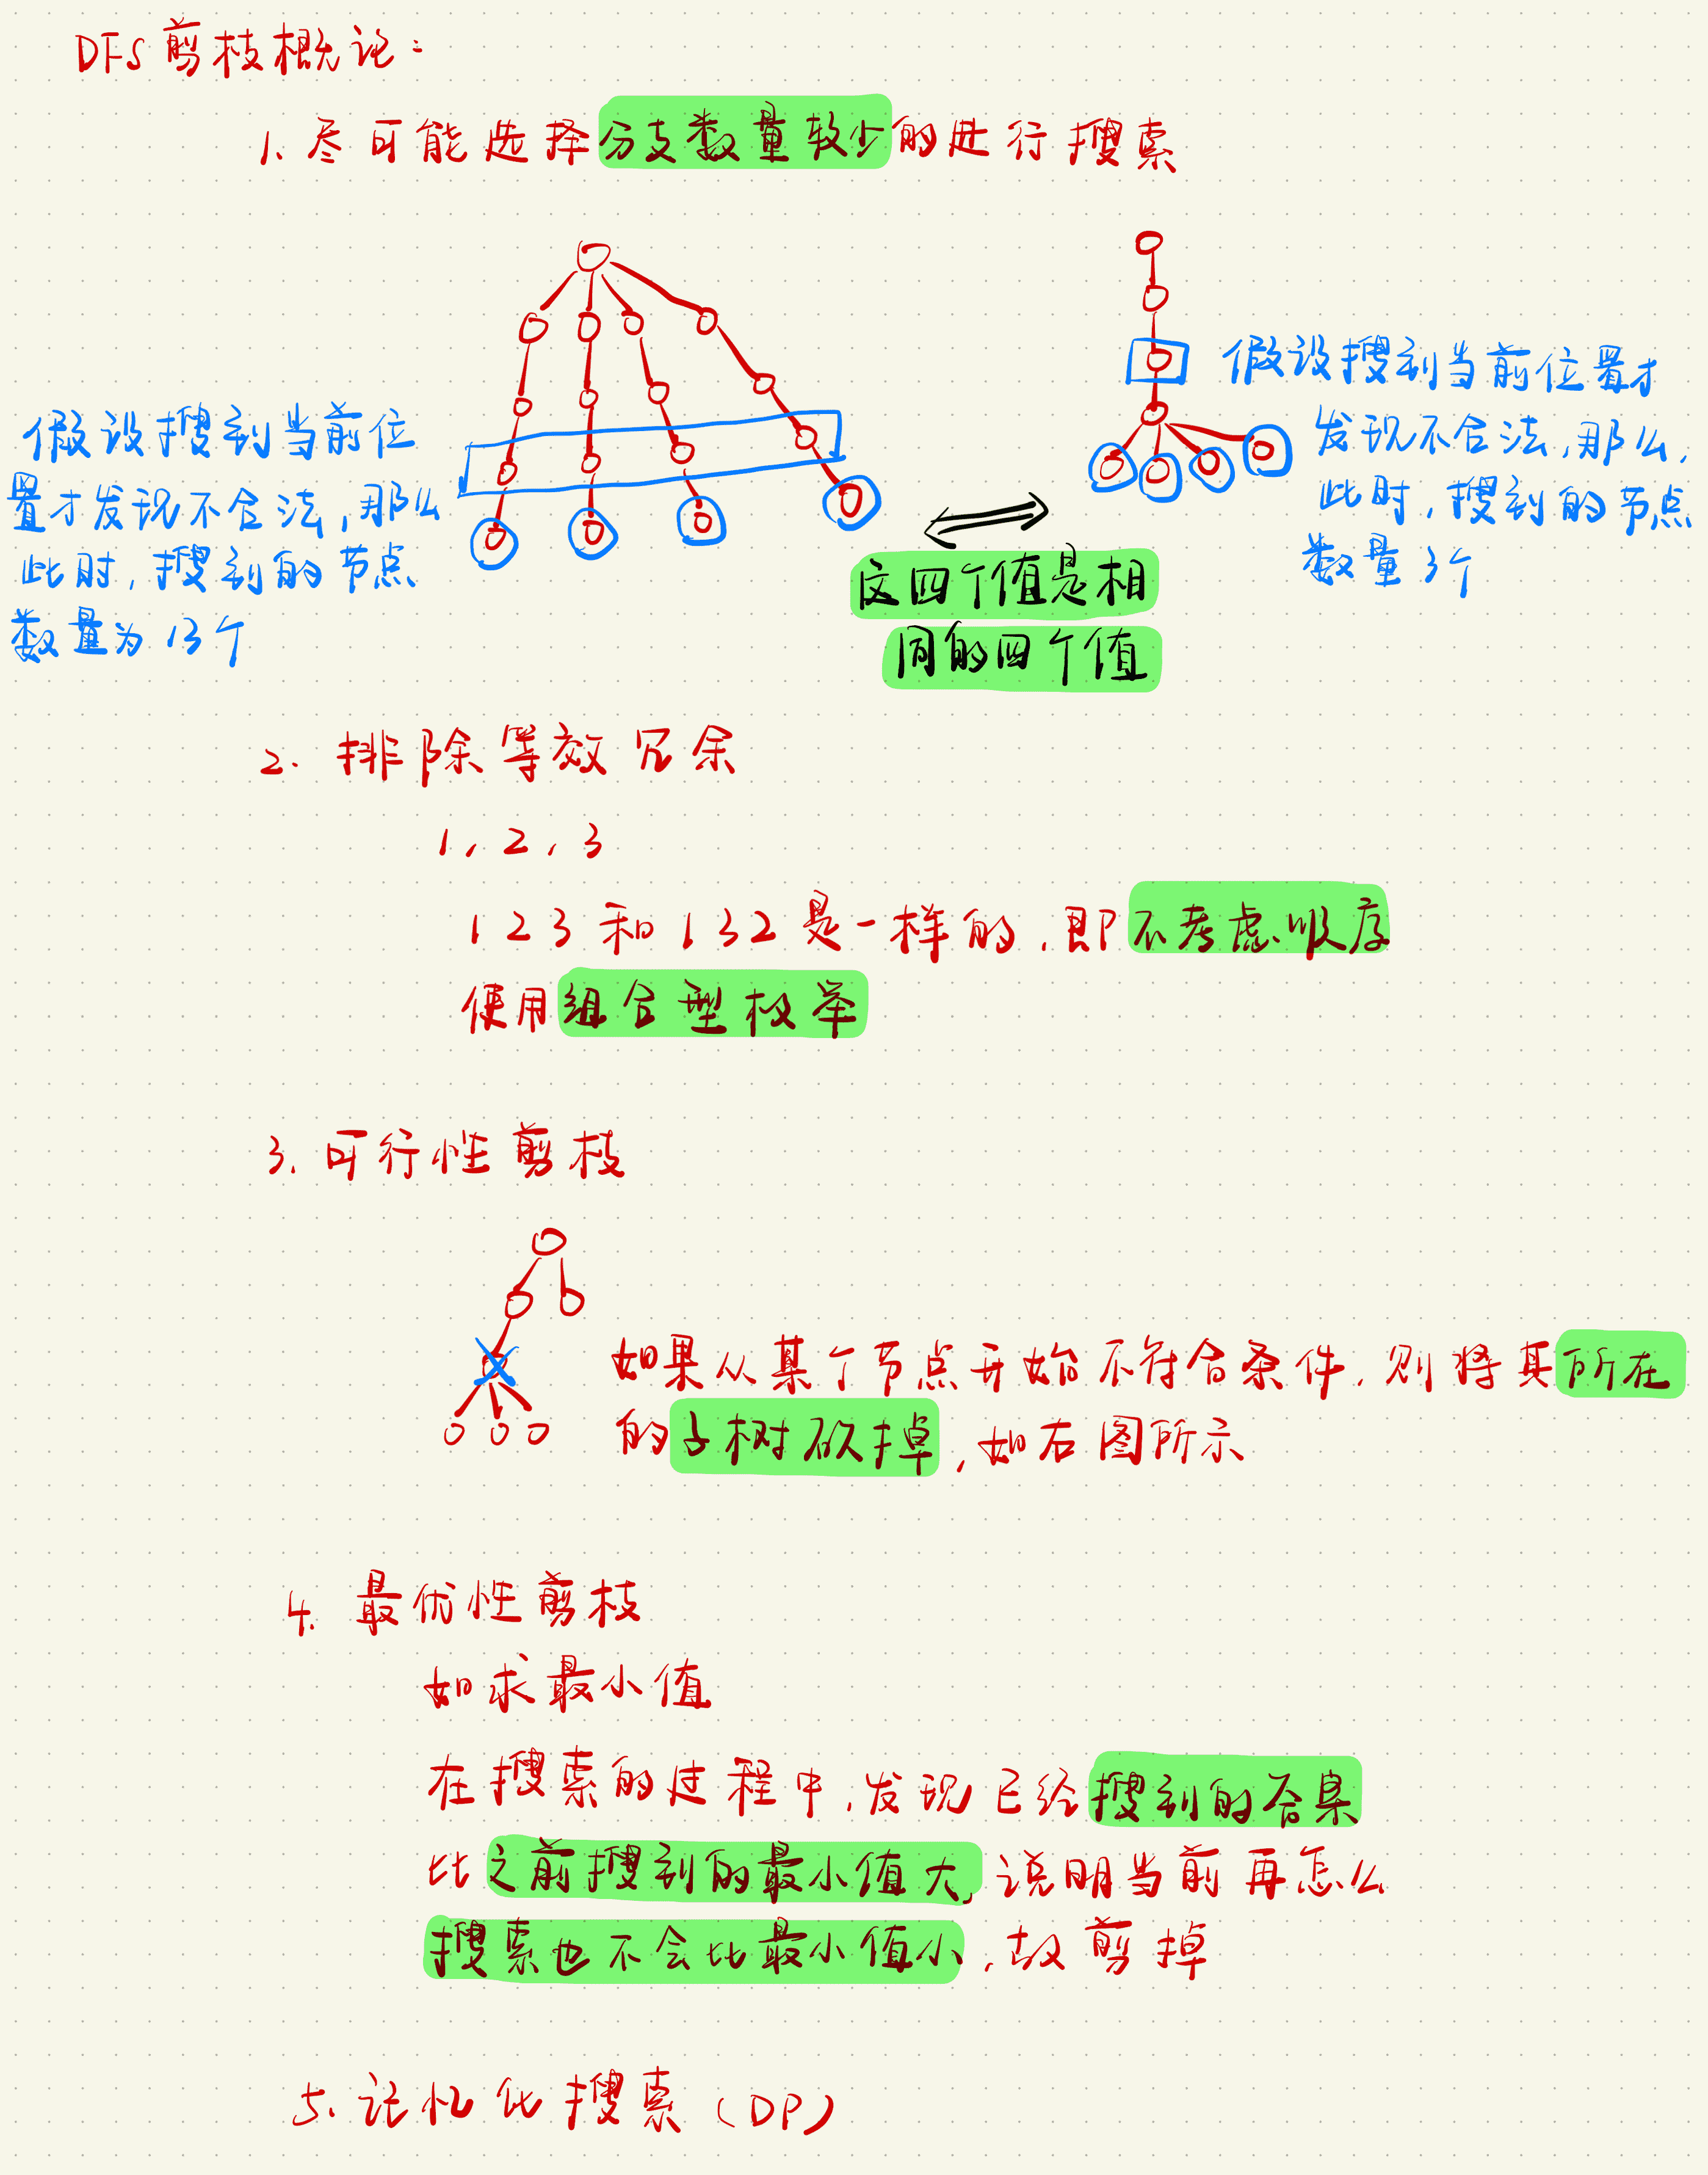 DFS剪枝概论：
1、尽可能选择分支数量较少的进行搜索
假设搜到当前位
置才发现不合法，那么
此时，搜到的节点
数量为13个
假设搜到当前位置才
发现不合法，那么，
此时，搜到的节点
数量3个
这四个值是相
同的四个值
2. 排除等效冗余
1，2，3
123和132是一样的，即不考虑顺序
使用组合型枚举
3. 可行性剪枝
如果从某个节点开始不符合条件，则将其所在
的子树砍掉，如右图所示
4. 最优性剪枝
如求最小值
在搜索的过程中，发现已经搜到的答案
比之前搜到的最小值大，说明当前再怎么
搜索也不会比最小值小，故剪掉
5. 记忆化搜索（DP）